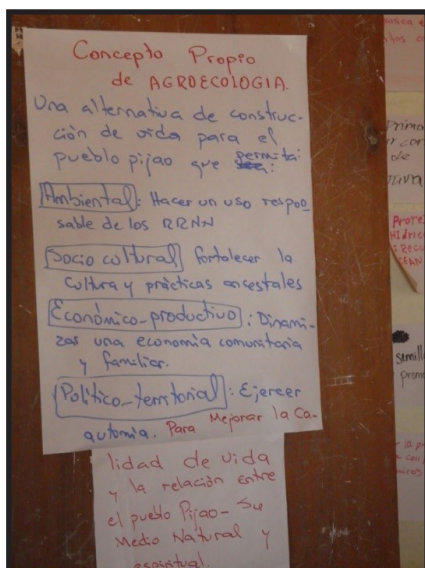 Concepto Propio
de AGROECOLOGIA.
Una alternativa de construc-
ción de vida para el
pueblo pijao que permita:
Ambiental: Hacer un uso respon
sable de los RRNN
Socio cultural fortalecer la
Cultura y prácticas ancestales
Económico-productivo: Dinami-
zar una economia comunitaria
y familiar.
Político-territorial: Ejercer
autonomia. Para Mejorar la Ca-
lidad de vida
y la relación entre
el pueblo Pijao - Su
Medio Natural y
espiritual.